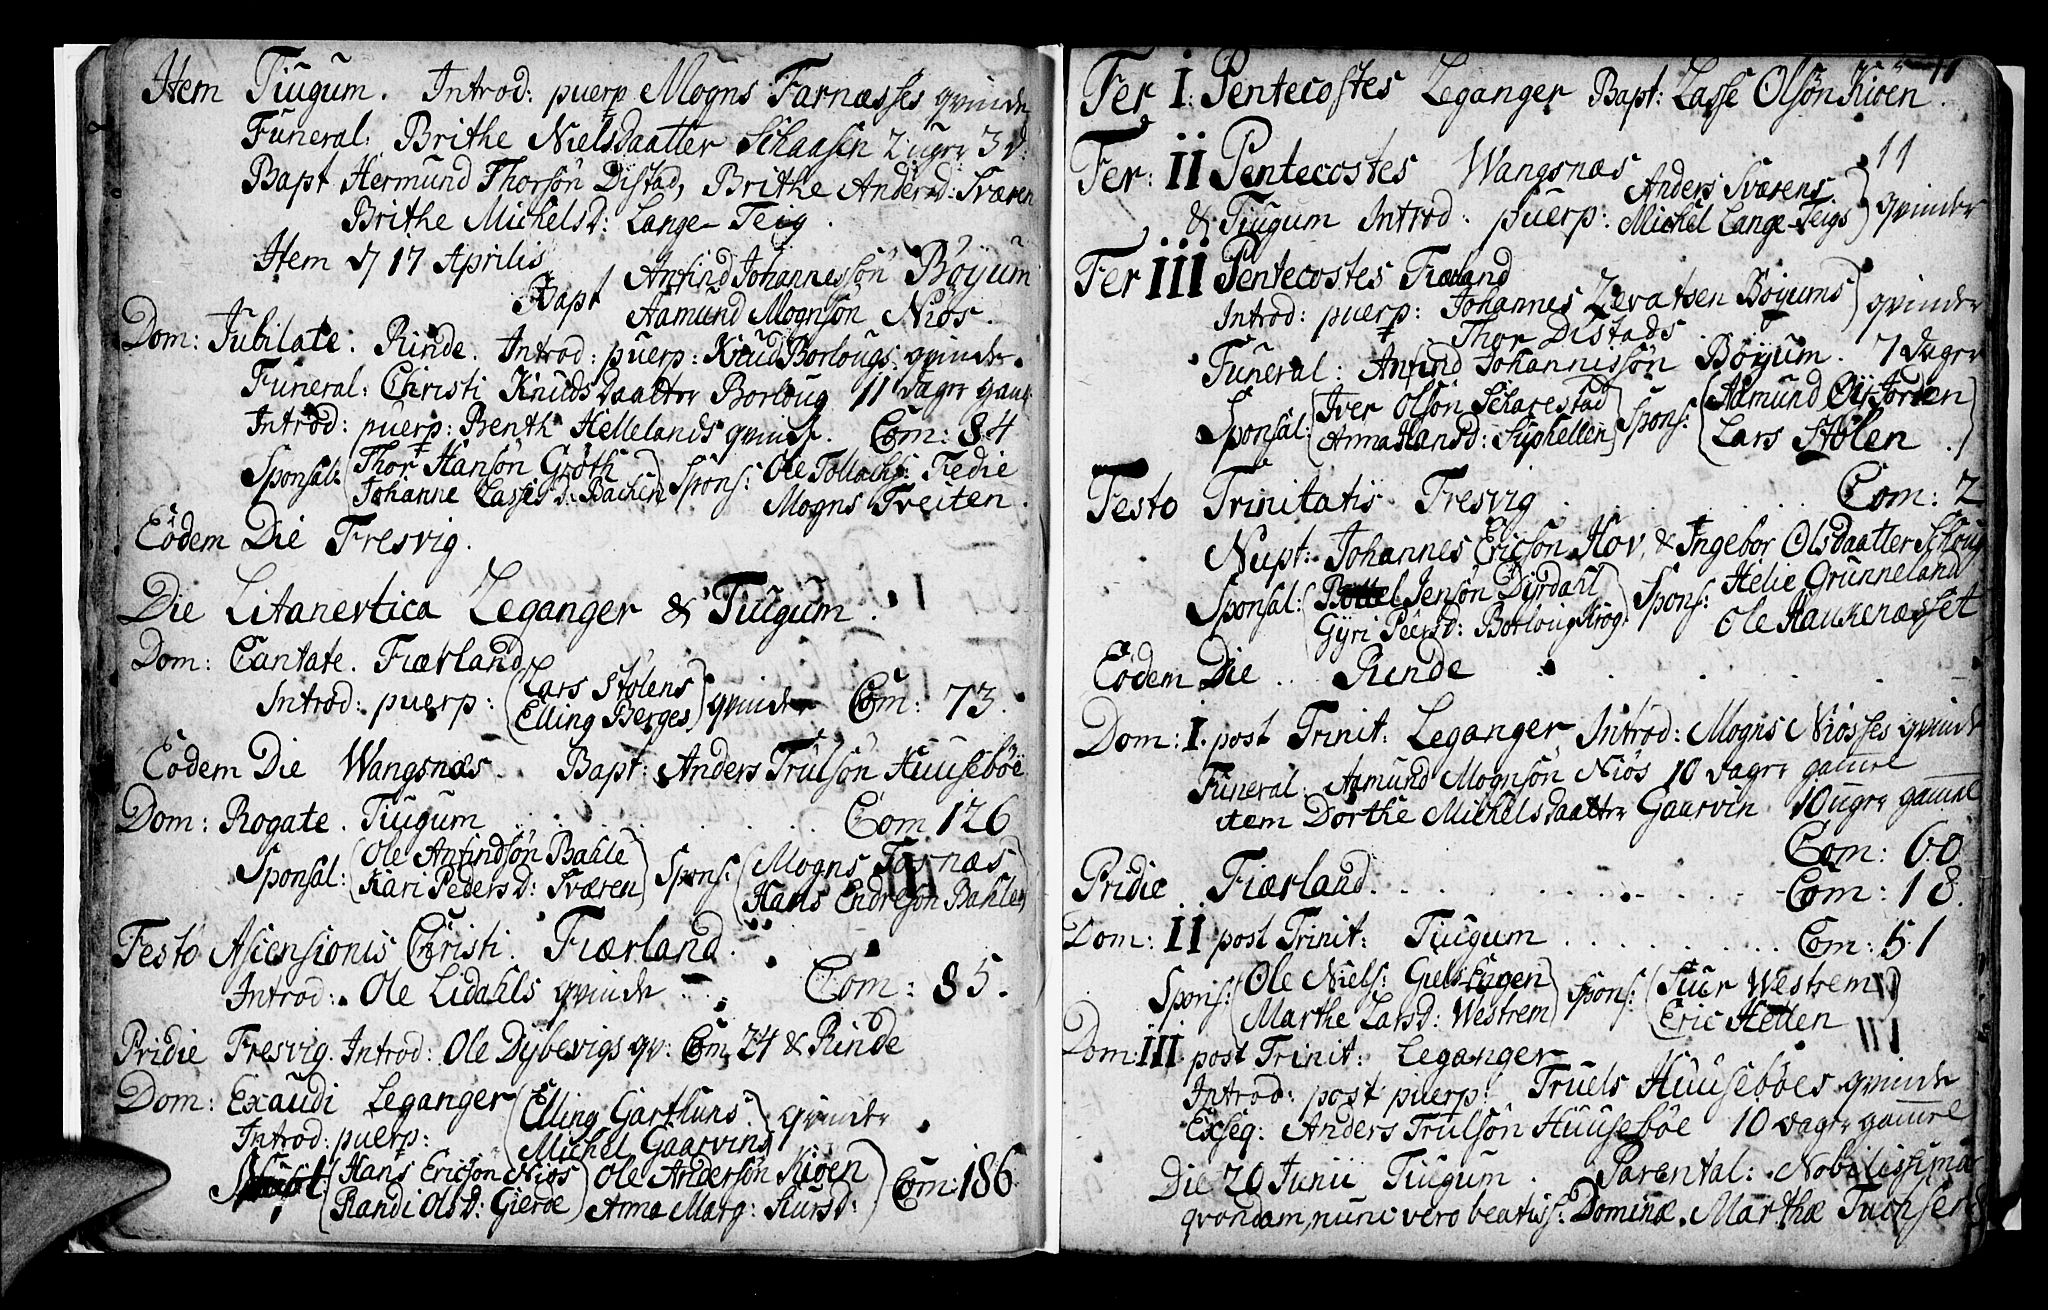 Item Tiugum. Introd: puerp Mogns Farnæsses qvinde
Funeral: Brithe Nielsdaatter Schaasen 2 ugr 3 d:
Bapt Hermund Thorsön Distad, Brithe Andersd: Sværen
Brithe Michelsd: Lange-Teig.
Item d 17 Aprilis
Bapt Anfind Johannessön Böyum
Aamund Mognsön Niös.
Dom: Jubilate. Rinde. Introd: puerp: Knud Borlougs qvinde.
Funeral: Christi Knudsdaatter Borloug 11 dagr gaml
Introd: puerp: Benth Hellelands qvinde. Com: 84
Sponsal: (Thor Hansön Gröth
Johanne Lassesd: Bachen) Spons: Ole Tollachs: Fedie
Mogns Tveiten.
Eodem Die Fresvig.
Die Litanevtica Leganger & Tiugum.
Dom: Cantate. Fiærland
Introd: puerp: (Lars Stölens
Elling Berges) qvinder Com: 73.
Eodem Die Wangsnæs. Bapt: Anders Trulsön Huuseböe
Dom: Rogate. Tiugum Com 126
Sponsal: (Ole Anfindsön Bahle
Kari Pedersd: Sværen) Spons: (Mogns Farnæs
Hans Endresön Bahle)
Festo Ascensionis Christi. Fiærland.
Introd: Ole Lidahls qvinde Com: 85.
Pridie Fresvig. Introd: Ole Dybevigs qv: Com 24 & Rinde
Dom: Exaudi Leganger
Introd: puerp: (Elling Gartluns
Michel Gaarvins) qvinder
Nupt: (Hans Ericsön Niös
Randi Olsd: Gieröe) Ole Andersön Kioen
Anna Marg: Siursd:) Com: 186
Fer I: Pentecostes Leganger Bapt: Lasse Olsön Kioen. 11
Fer: II Pentecostes Wangsnæs 11
& Tiugum Introd: puerp: Anders Sværens
Michel Lange-Teigs) qvinder
Fer III Pentecostes Fiærland
Introd: puerp: Johannes Zevatsen Böyums
Thor Distads) qvinder
Funeral: Anfind Johannissön Böyum. 7 dagr
Sponsal: (Iver Olsön Scharestad
Anna Hansd: Suphellen) Spons: (Aamund Öijorden
Lars Stölen)
Festo Trinitatis Fresvig Com: 2
Nupt: Johannes Ericson Hov, & Ingebor Olsdaatter Schoug
Sponsal: (Bottel Jensön Dyrdahl
Gyri Peersd: Borloug Krog) Spons: Helie Grünneland
Ole Haukenæsset
Eodem Die Rinde
Dom: I. post Trinit: Leganger Introd: Mogns Niösses qvinde
Funeral: Aamund Mognsön Niös 10 dagr gamle
item Dorthe Michelsdaatter Gaarvin 10 ugr gamle
Com: 60
Pridie Fiærland. Com: 18.
Dom: II post Trinit: Tiugum Com: 51
Spons: (Ole Niels: Giels-Eygen
Marthe Larsd: Westrem) Spons: (Siur Westrem
Eric Hetlen
Dom: III post Trinit: Leganger
Introd: post puerp: Truels Huuseböes qvinde
Exseq: Anders Trulsön Huuseböe 10 dagr gamle
Die 20 Junii Tiugum. Parental: Nobilissimæ
qvondam, nunc vero beatiss: Dominæ Marthæ